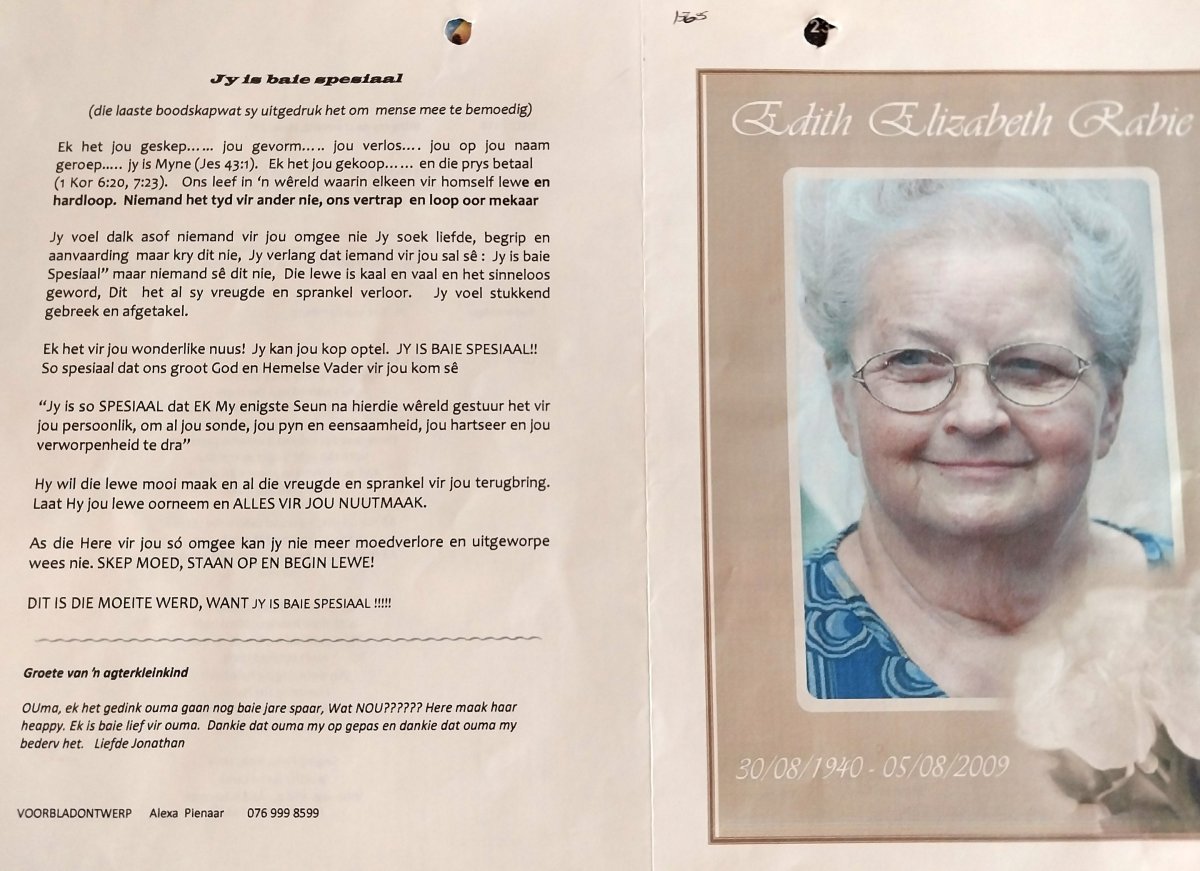 Jy is baie spesiaal
(die laaste boodskapwat sy uitgedruk het om mense mee te bemoedig)
Ek het jou geskep…… jou gevorm….. jou verlos…. jou op jou naam
geroep….. jy is Myne (Jes 43:1). Ek het jou gekoop…… en die prys betaal
(1 Kor 6:20, 7:23). Ons leef in ‘n wêreld waarin elkeen vir homself lewe en
hardloop. Niemand het tyd vir ander nie, ons vertrap en loop oor mekaar
Jy voel dalk asof niemand vir jou omgee nie Jy soek liefde, begrip en
aanvaarding maar kry dit nie, Jy verlang dat iemand vir jou sal sê : Jy is baie
Spesiaal” maar niemand sê dit nie, Die lewe is kaal en vaal en het sinneloos
geword, Dit het al sy vreugde en sprankel verloor. Jy voel stukkend
gebreek en afgetakel.
Ek het vir jou wonderlike nuus! Jy kan jou kop optel. JY IS BAIE SPESIAAL!!
So spesiaal dat ons groot God en Hemelse Vader vir jou kom sê
“Jy is so SPESIAAL dat EK My enigste Seun na hierdie wêreld gestuur het vir
jou persoonlik, om al jou sonde, jou pyn en eensaamheid, jou hartseer en jou
verworpenheid te dra”
Hy wil die lewe mooi maak en al die vreugde en sprankel vir jou terugbring.
Laat Hy jou lewe oorneem en ALLES VIR JOU NUUTMAAK.
As die Here vir jou só omgee kan jy nie meer moedverlore en uitgeworpe
wees nie. SKEP MOED, STAAN OP EN BEGIN LEWE!
DIT IS DIE MOEITE WERD, WANT JY IS BAIE SPESIAAL !!!!!
Groete van ’n agterkleinkind
OUma, ek het gedink ouma gaan nog baie jare spaar, Wat NOU?????? Here maak haar
heappy. Ek is baie lief vir ouma. Dankie dat ouma my op gepas en dankie dat ouma my
bederv het. Liefde Jonathan
VOORBLADONTWERP Alexa Pienaar 076 999 8599
Edith Elizabeth Rabie
30/08/1940 - 05/08/2009